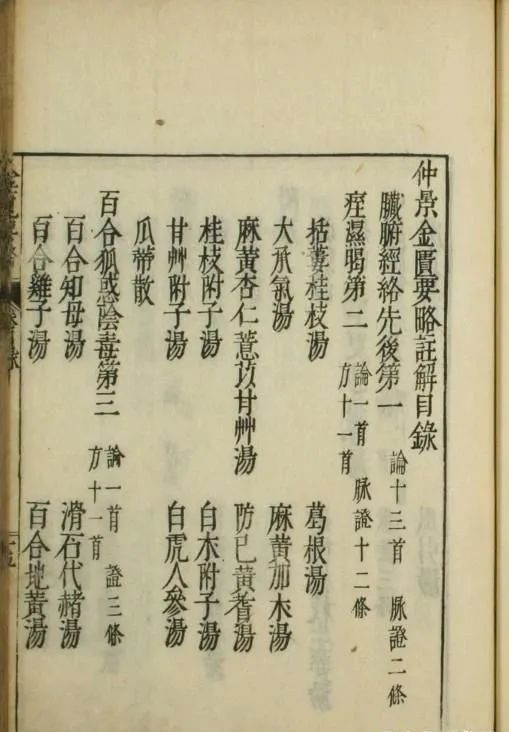 仲景金匱要略註解目錄
臟腑經絡先後第一 論十三首 脉證二條
痓濕暍第二 論一首 脉證十二條
方十一首
括蔞桂枝湯 葛根湯
大承氣湯 麻黃加木湯
麻黃杏仁薏苡甘艸湯 防已黃蓍湯
桂枝附子湯 白木附子湯
甘艸附子湯 白虎人參湯
瓜蒂散
百合狐惑陰毒第三 論一首 證三條
方十一首
百合知母湯 滑石代赭湯
百合雞子湯 百合地黃湯